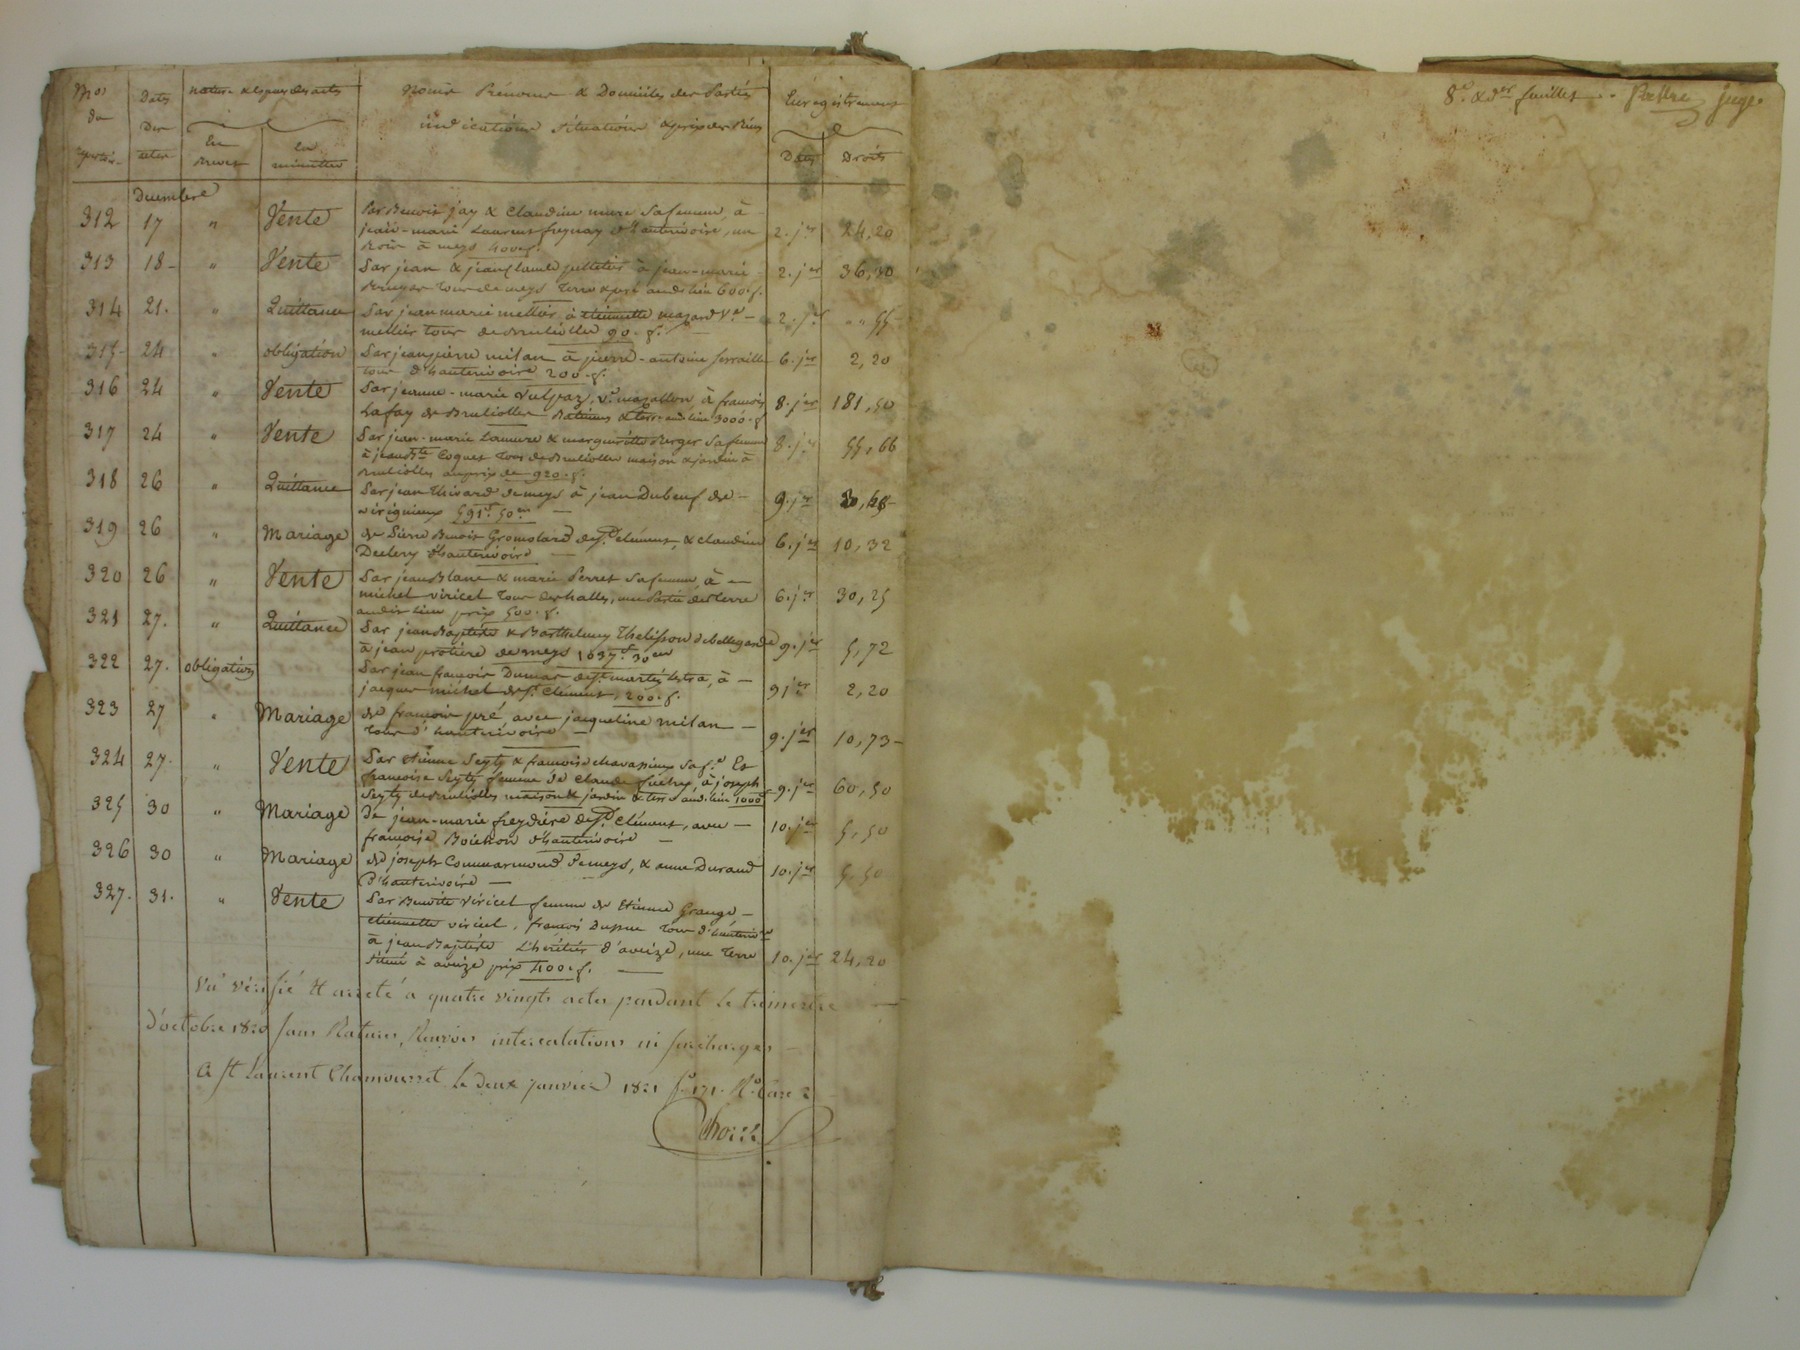 Nos dates nature & espèces des actes Noms Prénoms & Domiciles des Parties Enregistrement
du Des En en indications situations & prix des Biens
actes Brevet minutes Dates Droits
Decembre
312 17 " Vente Par Benoit jay & Claudine sa femme, à
jean-marie Laurent d'hauterivoire, un
Bois à meys 400 f. 2. jer 24,20
313 18 - " Vente Par jean & jean Claude à jean-marie
tous de meys terre & pré audit lieu 600 f. 2. jer 36,30
314 21. " Quittance Par jean marie mellier à etiennette mazard Ve
mellier tous de Brullioller 90 f. 2. jer " " 55
315 24 " obligation Par jean pierre milan à pierre-antoine ferraille
tous d'hauterivoire 200 f. 6. jer 2,20
316 24 " Vente Par jeanne-marie Ve à francois
Lafay de Brullioller Batimens & terre audit lieu 3000 f 8. jer 181,50
317 24 " Vente Par jean-marie Lamure & margueritte Berger sa femme
à jean Bte Coquet tous de Brullioller maison & jardin à
Brullioller au prix de 920 f. 8. jer 55,66
318 26 " Quittance Par jean Thivard de meys à jean Dubeuf de
virigneux 591 f 50 c 9. jer
319 26 " Mariage de Pierre Benoit Gromolard de St clément, & claudine
d'hauterivoire 6. jer 10,32
320 26 " Vente Par jean Blanc & marie Perret sa femme, à
michel viricel tous des halles, une Partie de terre
audit lieu prix 500 f. 6. jer 30,25
321 27. " Quittance Par jean Baptiste & Barthelemy Thelisson de bellegarde
à jean protiere de meys 1037 f 30 c 9. jer 5,72
322 27. obligation Par jean francois Dumas de St martin lestra, à
jacques michel de St Clément, 200 f. 9 jer 2,20
323 27 " Mariage de francois pré, avec jacqueline milan
tous d'hauterivoire 9. jer 10,73
324 27. " Vente Par etienne Seyty & francoise chavassieux sa fe Et
francoise Seyty femme de Claude à joseph
Seyty de Brullioller maison & jardin & terre audit lieu 1000 f 9. jer 60,50
325 30 " Mariage de jean-marie freydiere de St Clément, avec
francoise Boichon d'hauterivoire 10. jer 5,50
326 30 " Mariage de joseph Commarmond de meys, & anne Durand
d'hauterivoire 10. jer 5,50
327. 31. " Vente Par Benoite viricel femme de Etienne Grange
etiennette viricel, francois Dupuis tous d'hauterivre
à jean Baptiste L'héritier d'aveize, une terre
située à aveize prix 400 f. 10. jer 24,20
Vu vérifié & arreté a quatre vingts actes pendant le trimestre
d'octobre 1820 sans Ratures, Renvois intercalations ni surcharges
A St Laurent Chamousset le deux janvier 1821 fo 171. Ro Case 2
8e & der feuillet. juge